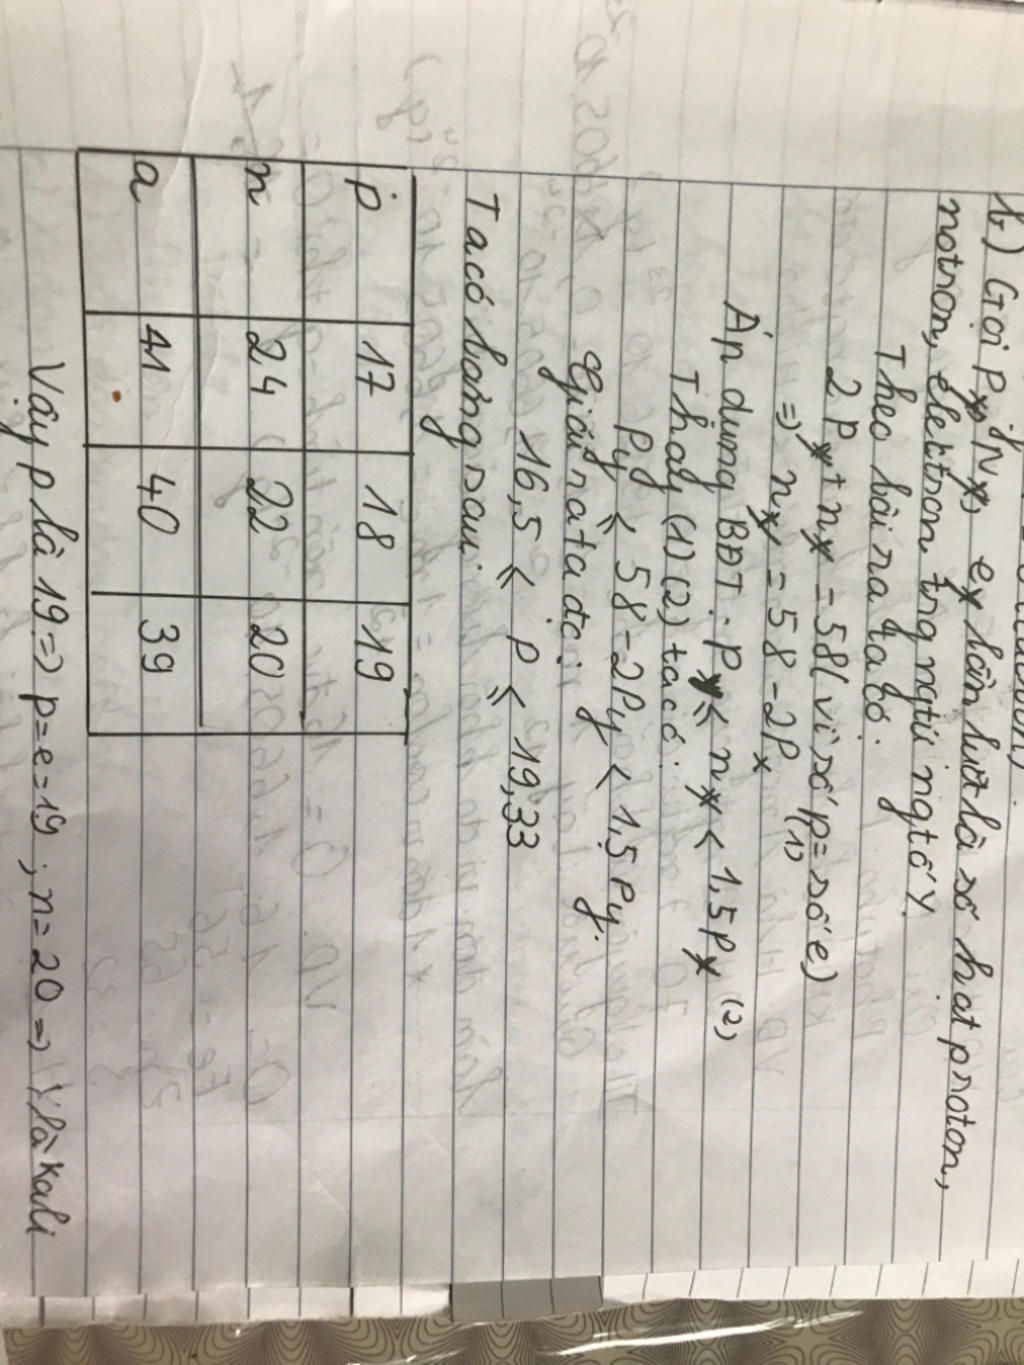 b) Gọi Px, Nx, ex lần lượt là số hạt proton,
notron, elektron trg ngtử ngtố Y.
Theo bài ra ta có:
2Px + nx = 58 (vì số p = số e)
=> nx = 58 - 2Px (1)
Áp dụng BĐT: Px ≤ nx < 1,5Px (2)
Thay (1) (2) ta có:
Py ≤ 58 - 2Py < 1,5Py.
Giải ra ta đc:
16,5 ≤ p ≤ 19,33
Ta có bảng sau:
p 17 18 19
n 24 22 20
a 41 40 39
Vậy p là 19 => p = e = 19 ; n = 20 => Y là kali